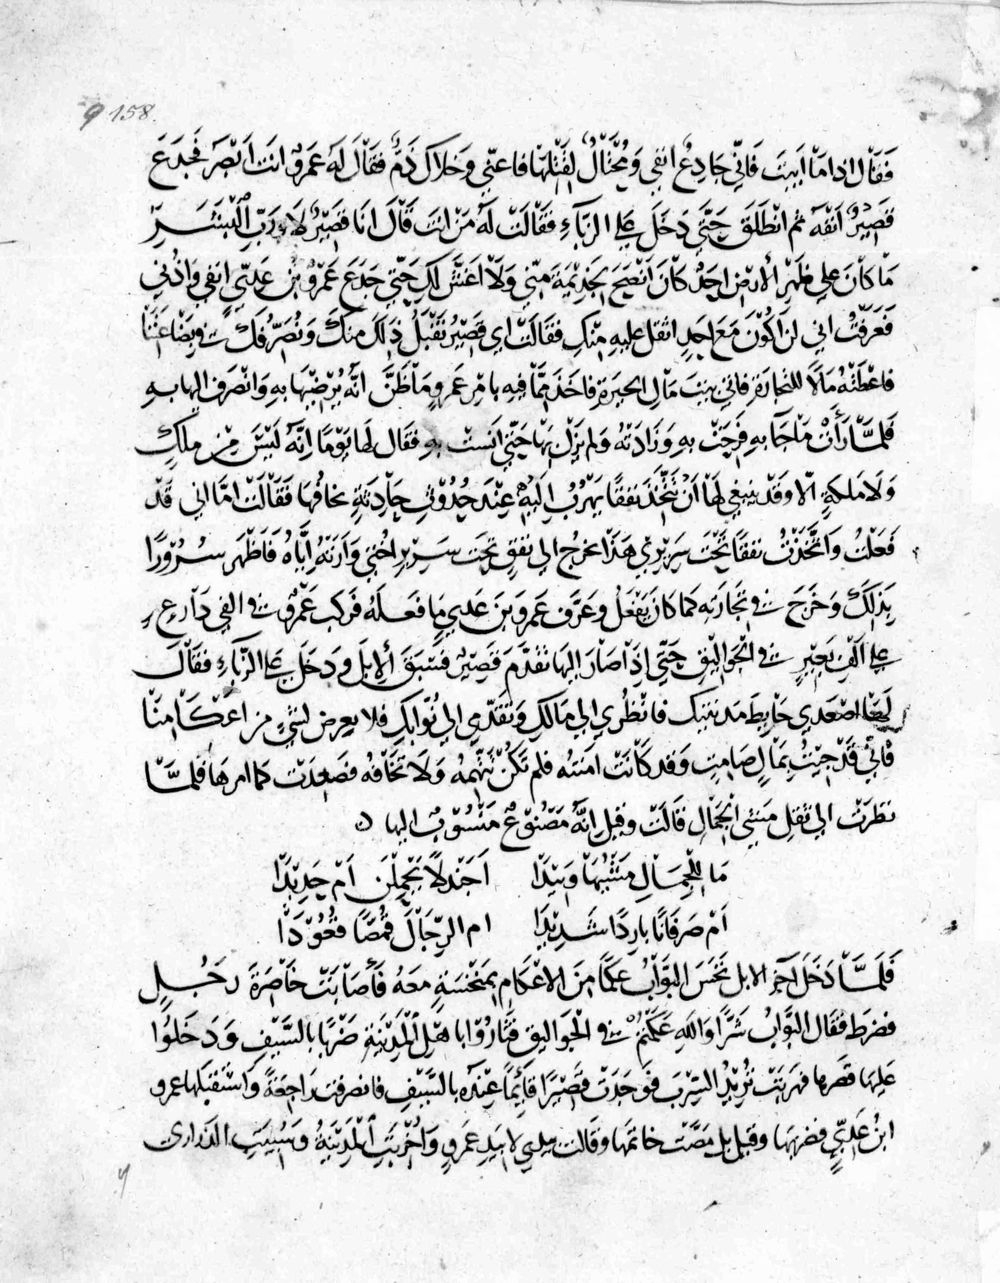 9 158.
فَقَال اذا مَا اَبيتَ فَاِنّي جَادِعٌ انفي وَمُحْتَالٌ لِقَتْلِهَا فاعنّي وَخلاك ذَمٌّ فقَالَ لهَ عَمرو انتَ اَبْصَر فجَدعَ
قَصِيْرٌ انفَهُ ثم انْطلَقَ حَتّي دَخَلَ عَلي الزبّآءِ فقَالَتْ لَهُ مَنْ انتَ قَالَ انَا قصَيْرٌ لاَ وَرَبِّ البَشَرِ
مَا كَانَ علي ظهْرِ الأرضِ احَدٌ كَانَ اَنْصَحَ لجَذِيْمَةَ مِنّي وَلاَ اغَشَّ لكِ حَتّي جَدَعَ عَمْرُو بْنُ عَدىٍّ انفي وَاذُني
فَعَرفْتُ اني لن اَكُوْنَ مَعَ احَدٍ اثقلَ عليهِ مِنكِ فقَالَتْ اي قصَيْرُ نَقْبَلُ ذَلكَ منكَ وَنُصَرِّفُكَ في بِضَاعَتنَا
فاعْطَتْهُ مَالاً للتجَارَةِ فاتي بيتَ مَالِ الحيرَةِ فاخَذَ ممّا فيهِ بامْرِ عَمرٍو مَا ظَنَّ انَّه يُرْضِيْهَا بهِ وَانْصَرفَ اليهَا بهِ
فَلمَّا رَأَتْ مَا جَآ بهِ فَرِحَتْ بهِ وَزَادَتهُ وَلم يزَلْ بهَا حَتّي انسَتْ بهِ فقَال لهَا يَوْمًا اِنَّهُ لَيْسَ مِن ملِكٍ
وَلاَ مَلِكةٍ الّا وَقَدْ ينبَغي لهَا اَنْ تتّخِذَ نفقًا تهْرُبُ اِلَيْهِ عِنْدَ حُدُوْثِ حَادِثَةٍ تخافُهَا فَقَالَتْ امّا اني قَدْ
فَعَلْتُ وَاتَّخَذْتُ نفقًا تَحْتَ سَرِيْرِي هَذَا يخرُج الي نفَقٍ تحتَ سَرِيرِ اختي وَاَرَتْهُ اِيَّاهُ فَاظْهَر سُرُوْرًا
بِذَلِكَ وَخرَجَ في تِجَارَتِه كمَا كَانَ يَفْعَلُ وعَرّفَ عَمرو بنَ عَديٍ مَا فعَلهُ فركبَ عَمْرٌو في الفَي دَارعٍ
علي الَفِ بَعِيْرٍ في الجوَاليقِ حَتّي اِذَا صَارَ اليهَا تقدَّمَ قصِيْرٌ فسَبَقَ الإبلَ وَدَخَلَ عَلي الزَّبّآءِ فقَالَ
لهَا اصْعَدي حَايطَ مَدينتِكِ فانظُري الي مَالكِ وَتَقَدّمي الي بوّابكِ فلا يعرض لشيءٍ من اعْكَامنَا
فانّي قَدْ جِيْتُ بمَالٍ صَامِتٍ وَقد كَانَتْ امِنَتهُ فلم تكُنْ تَتّهِمُهُ وَلاَ تخَافهُ فصَعِدَتْ كما امرهَا فلمَّا
نظرَتْ الي ثقلِ مَشي الجمَالِ قالَتْ وقيلَ انَّه مَصْنُوْعٌ مَنْسُوْبٌ اليهَا
مَا للجمَالِ مَشْيُهَا وَئيدَا    اَجَنْدَلاً يَحْمِلْنَ اَمْ حَدِيْدَا
اَمْ صَرَفَانًا بارِدًا شَدِيْدَا    ام الرّجَالَ قُمَّصًا قُعُوْدَا
فَلَمَّا دَخَلَ آخرُ الابلِ نَخَسَ البوّابُ عِكمًا مِنَ الاعْكَامِ بمنْخسَةٍ معَهُ فأصَابَتْ خَاصِرَةَ رَجُلٍ
فضرطَ فقَال البوّابُ شَرًّا وَاللهِ عَكَمْتُمْ في الجواليقِ فثَارُوْا باهْلِ الْمَدِيْنَةِ ضَرْبًا بالسَّيْفِ وَدَخلوُا
عَليهَا قصَرها فهَربَتْ تُرِيْدُ السّرَبَ فوَجَدَتْ قصَيْرًا قَآئِمًا عِنْدَه بالسّيْفِ فانصرفت رَاجعَةً وَاسْتقبَلهَا عمرو
ابنُ عَدِيٍّ فضربهَا وقيل بل مصَّتْ خاتمهَا وقالت بيدي لا بيدِ عَمرٍو وَاُخْرِبَتِ المَدِيْنَةُ وَسُبِيَتِ الذّراري